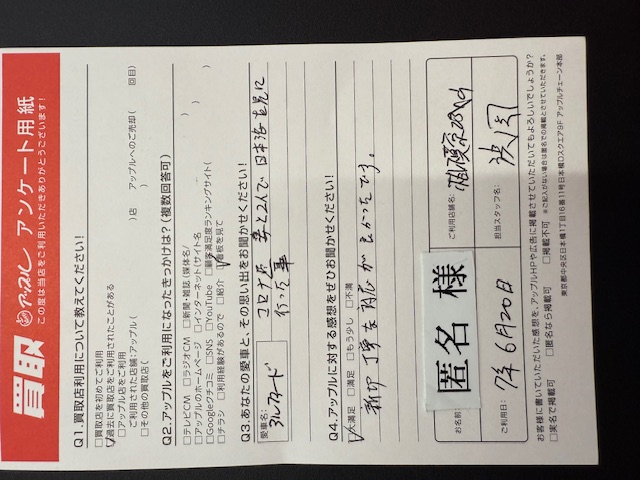 買取 アップル アンケート用紙
この度は当店をご利用いただきありがとうございます!
Q1.買取店利用について教えてください!
□買取店を初めてご利用
□過去に買取店をご利用されたことがある
□アップル店をご利用
ご利用された店舗:アップル( )店 アップルへのご売却( 回目)
□その他の買取店( )
Q2.アップルをご利用になったきっかけは?(複数回答可)
□テレビCM □ラジオCM □新聞・雑誌(媒体名/ )
□アップルのホームページ □インターネット(サイト名 )
□Googleクチコミ □SNS □YouTube □顧客満足度ランキングサイト( )
□チラシ □利用経験があるので □紹介 □看板を見て
Q3.あなたの愛車と、その思い出をお聞かせください!
愛車名:
アルファード
コロナ后 妻と2人で 日本海を見に
行った事
Q4.アップルに対する感想をぜひお聞かせください!
□大満足 □満足 □もう少し □不満
親切 丁寧な対応が良かったです。
お名前: 匿名 様
ご利用店舗名:
ご利用日: 7年 6月20日
担当スタッフ名:
お客様に書いていただいた感想を、アップルHPや広告に掲載させていただいてもよろしいでしょうか?
□実名で掲載可 □匿名なら掲載可 □掲載不可 ※ご記入がない場合は匿名での掲載とさせていただきます。
東京都中央区日本橋1丁目16番11号日本橋Dスクエア9F アップルチェーン本部